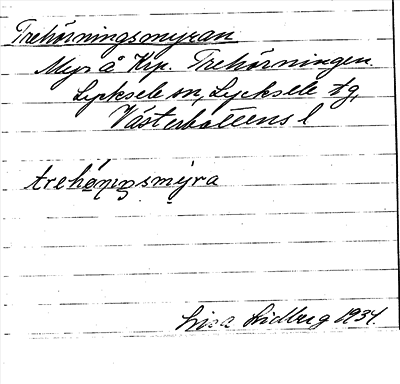 Trehörningsmyran
Myr å Krp. Trehörningen
Lycksele sn, Lycksele tg,
Västerbottens l
Lisa Lidberg 1934.